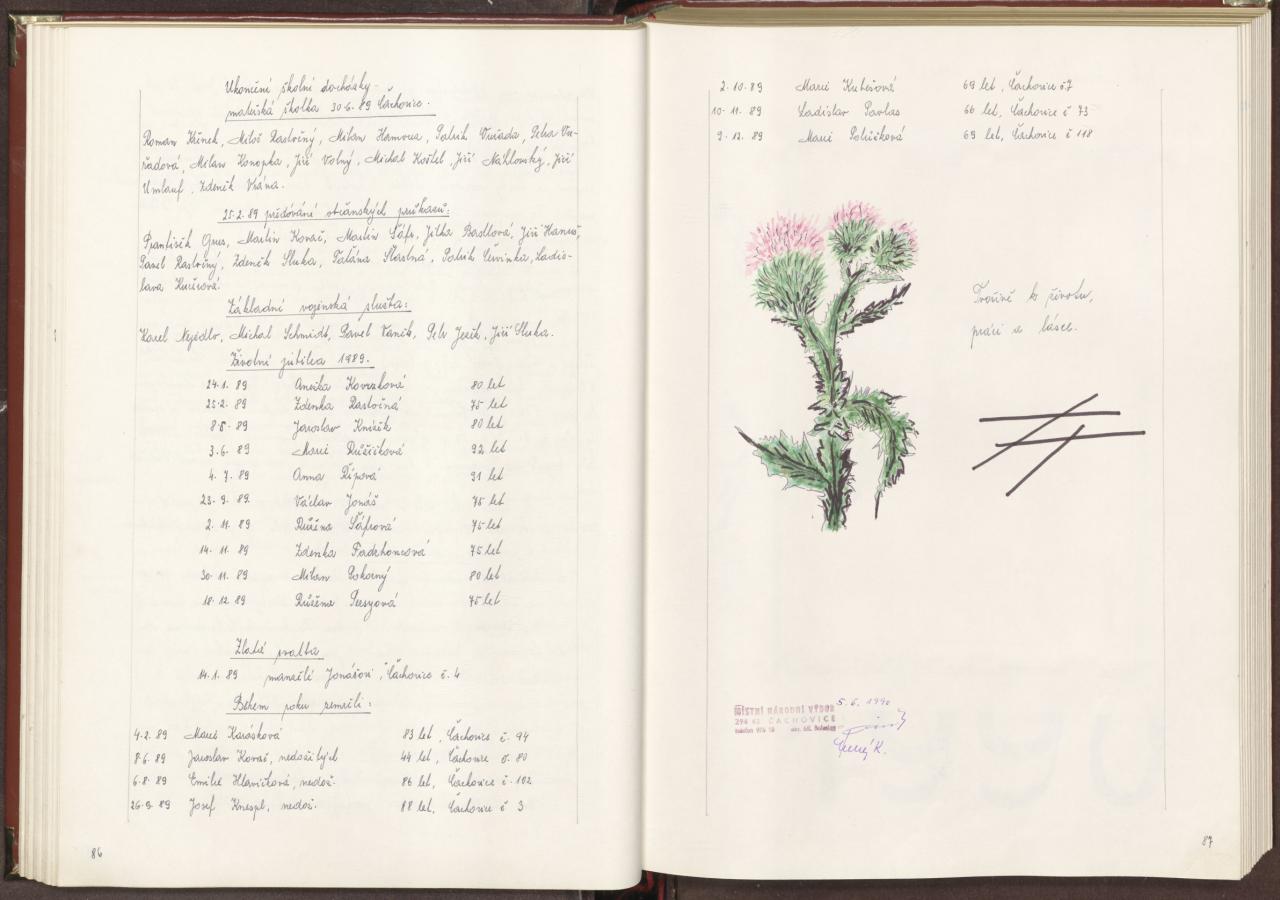 Ukončení školní docházky -
mateřská školka 30.6.89 Čachovice.
Roman Křinek, Miloš Rastočný, Milan Hamouz, Patrik Vavřada, Petra Vav-
řadová, Milan Konopka, Jiří Volný, Michal Koštel, Jiří Náhlovský, Jiří
Umlauf, Zdeněk Vrána.
25.2.89 předávání občanských průkazů:
František Grus, Martin Kovač, Martin Šáfr, Jitka Bastlová, Jiří Hanuš,
Pavel Rastočný, Zdeněk Sluka, Taťána Šťastná, Patrik Červinka, Ladis-
lava Kučerová.
Základní vojenská služba:
Karel Nejedlo, Michal Schmidt, Pavel Vaněk, Petr Jezek, Jiří Sluka.
Životní jubilea 1989.
24.1. 89 Anežka Koveřková 80 let
25.2. 89 Zdenka Rastočná 75 let
8.5. 89 Jaroslav Knížek 80 let
3.6. 89 Marie Růžičková 92 let
4. 7. 89 Anna Řípová 91 let
23. 9. 89. Václav Jonáš 75 let
2. 11. 89 Růžena Šáfrová 75 let
14. 11. 89 Zdenka Fadrhoncová 75 let
30. 11. 89 Milan Pokorný 80 let
18. 12 89 Růžena 75 let
Zlatá svatba
14.1. 89 manželé Jonášovi, Čachovice č. 4
Během roku zemřeli:
4.2. 89 Marie Karásková 83 let, Čachovice č. 94
8.6. 89 Jaroslav Kovač, nedožitých 44 let, Čachovice č. 80
6.8. 89 Emilie Hlavičková, nedož. 86 let, Čachovice č. 102
26.9. 89 Josef Knespl, nedož. 88 let, Čachovice č 3
86
2. 10. 89 Marie Kutešová 69 let, Čachovice č.7
10. 11. 89 Ladislav Pavlas 66 let, Čachovice č 73
9. 12. 89 Marie Poličková 69 let, Čachovice č 118
Tvořivě k životu,
práci a lásce.
5. 6. 1990
MÍSTNÍ NÁRODNÍ VÝBOR
294 43 ČACHOVICE
Černý K.
87